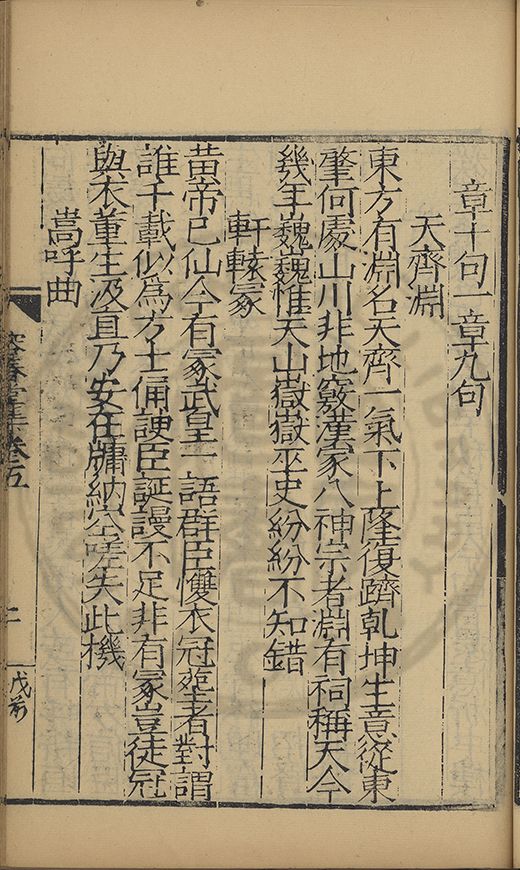 章十句一章九句
天齊淵
東方有淵名天齊一氣下上隆復躋乾坤生意從東
肇何處山川非地竅漢家八神宗者淵有祠稱天今
幾年巍巍惟天山嶽嶽巫史紛紛不知錯
軒轅冢
黄帝已仙今有冢武皇一語群臣㦬衣冠塟者對謂
誰千載似爲方士俑諛臣誕謾不足非有冢豈徒冠
與衣董生汲直乃安在牖納空嗟失此機
嵩呼曲
二
戊前